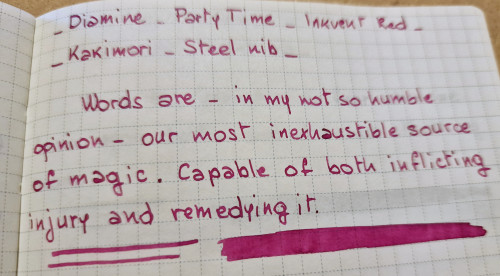 _ Diamine _ Party Time _ Inkvent Red _
_ Kakimori _ Steel nib _
Words are - in my not so humble
opinion - our most inexhaustible source
of magic. Capable of both inflicting
injury and remedying it.